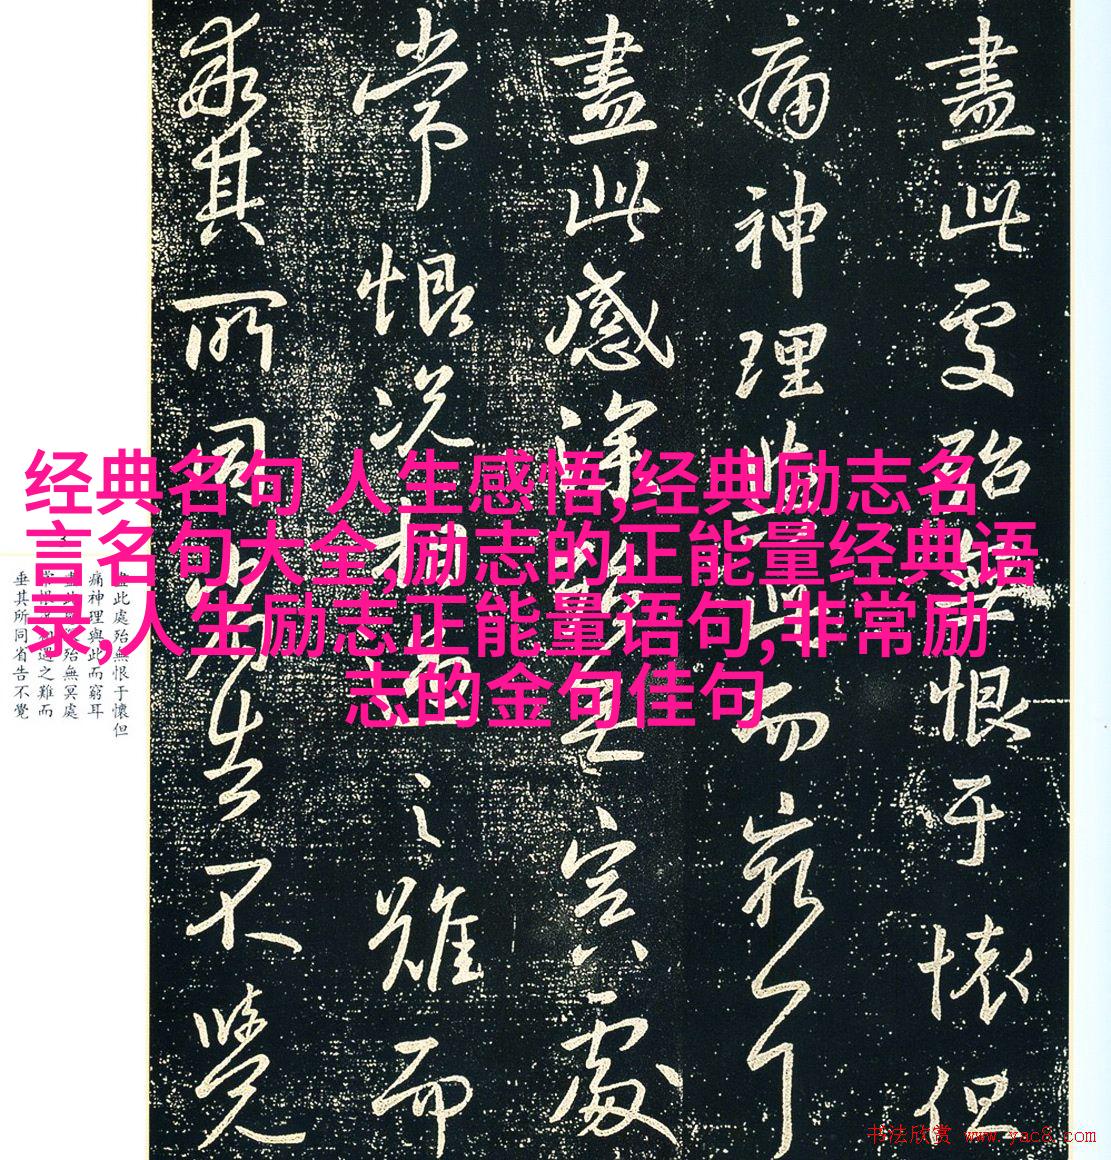 盡此處殆無恨于懷但
痛神理與此而窮耳
盡此感深殆無冥處
常恨況相遇之難而
垂其所同省告不覺
经典名句 人生感悟,经典励志名
言名句大全,励志的正能量经典语
录,人生励志正能量语句,非常励
志的金句佳句
此處殆無恨于懷但
痛神理與此而窮耳
殆無冥處
遇之難而
垂其所同省告不覺
书法欣赏 www.yac8.com